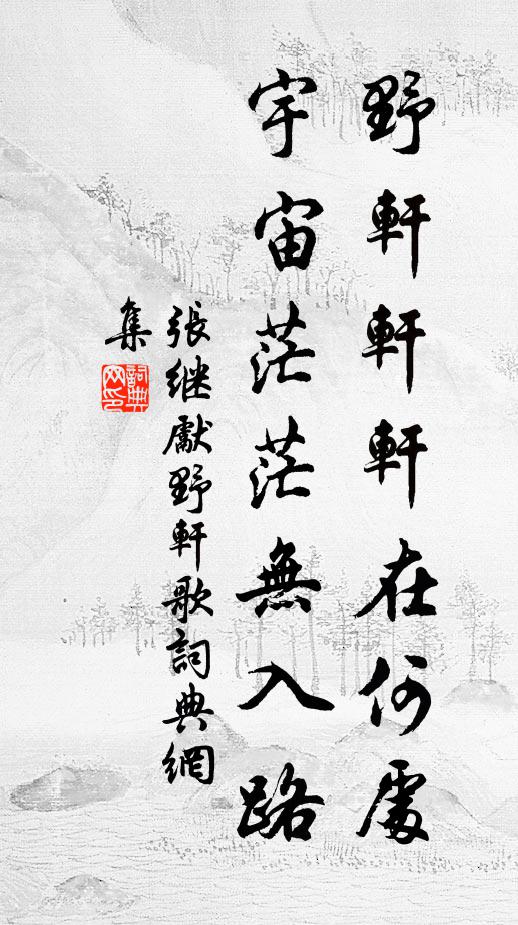 野軒軒軒在何處
宇宙茫茫無入路
張继獻野軒歌詞典網
集
詞典网印